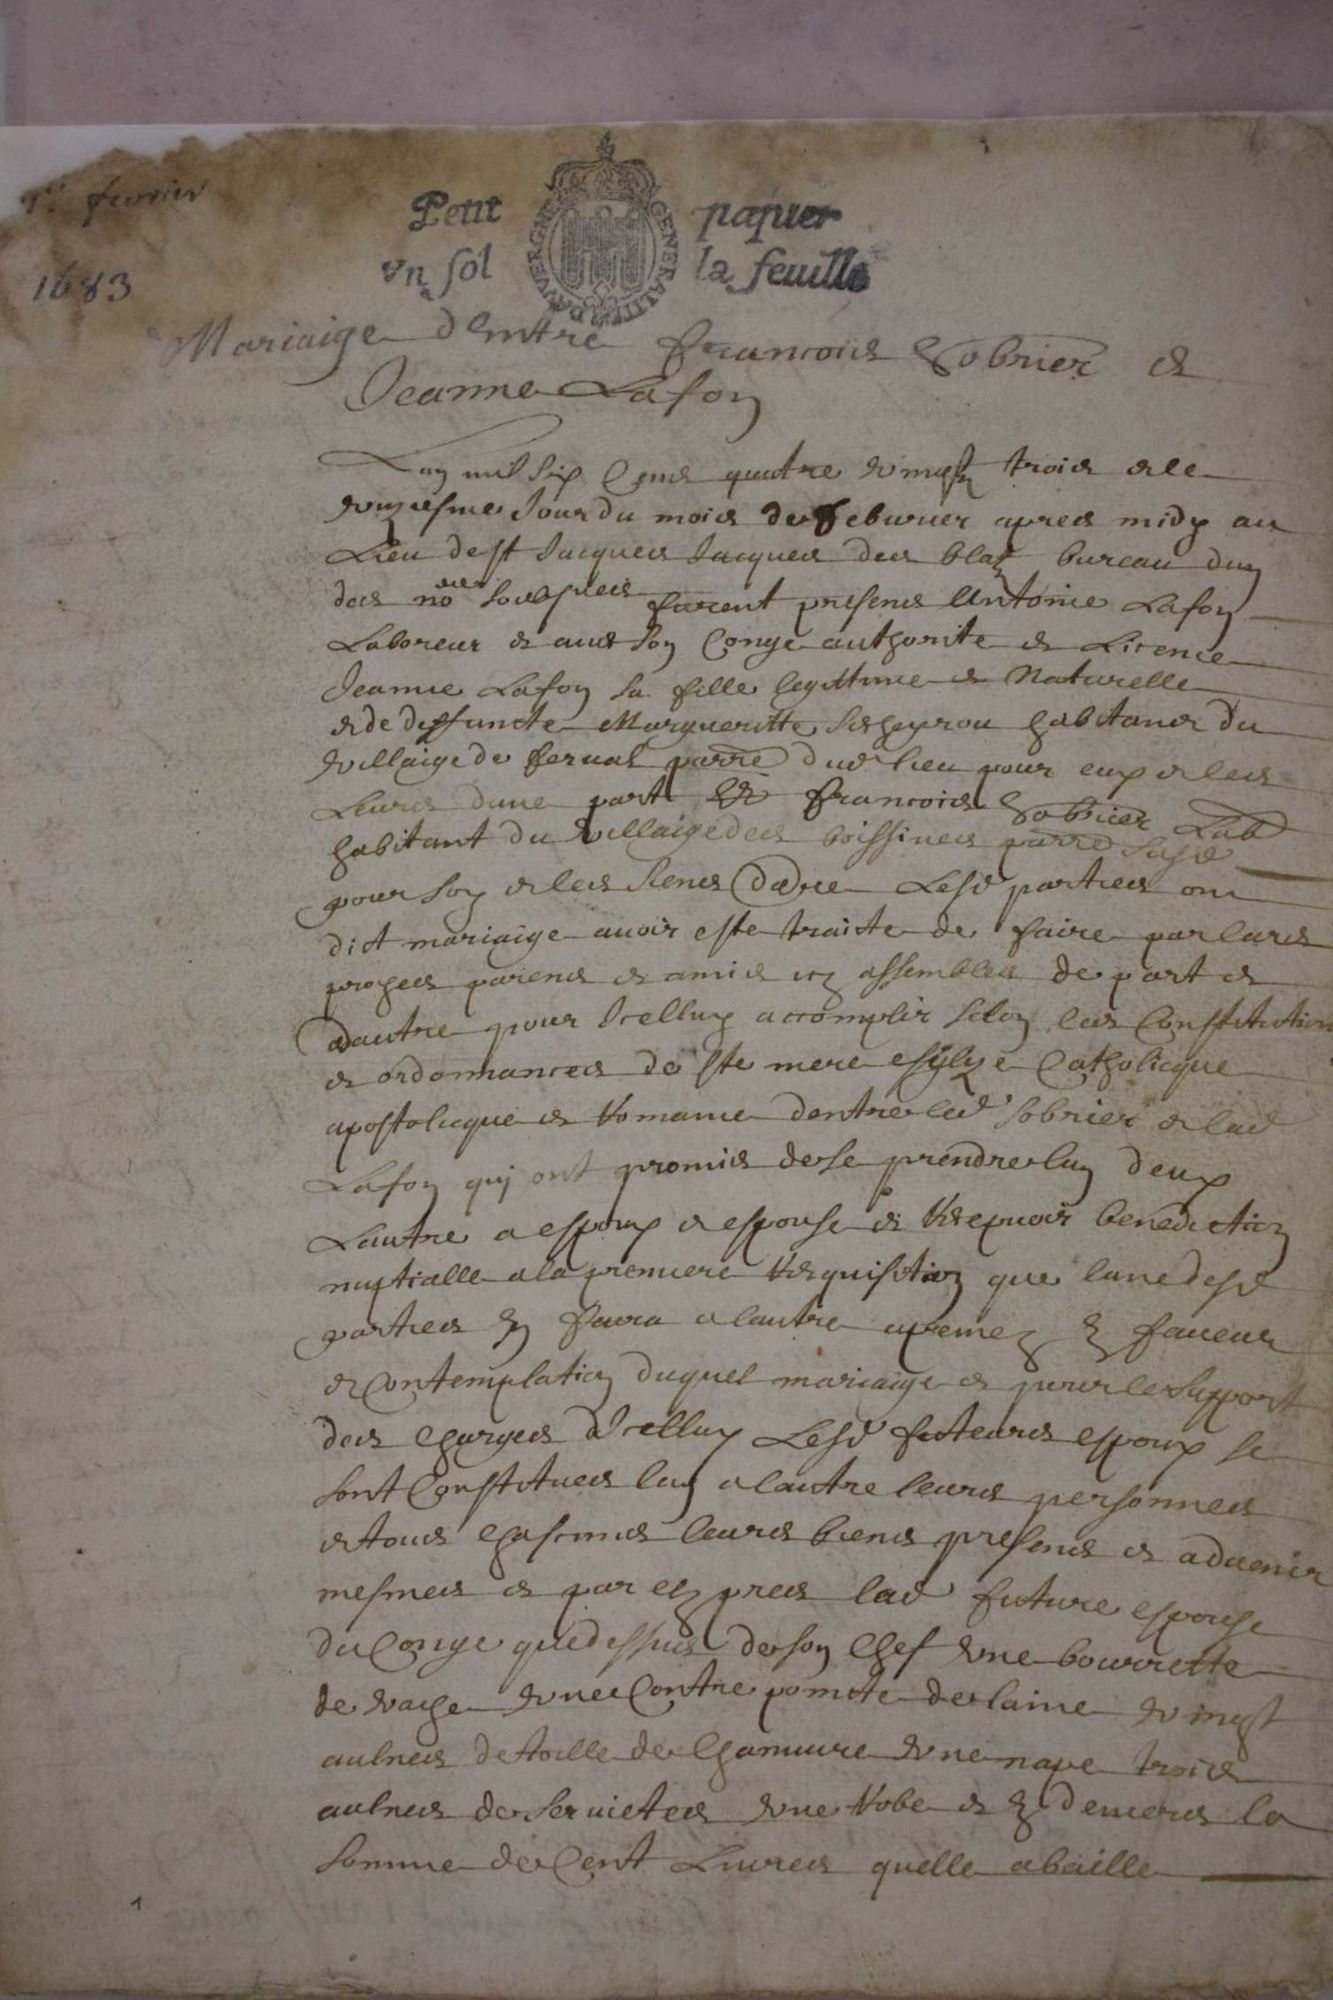 1er fevrier
1683
Petit papier
vn sol la feuille
GENERALITE D'AUVERGNE
Mariaige dentre francois Sobrier et
Jeanne Lafon
Lan mil six Cens quatre vingt trois et le
jour du mois de feburier apres midy au
Lieu de st Jacques Jacques des blat bureau dun
des nores soubz furent presens Antoine Lafon
Laboreur et auec son Conge authorite et Licence
Jeanne Lafon sa fille legittime et Naturelle
et de deffuncte Margueritte habitans du
villaige de parre dud lieu pour eux et les
Leurs dune part Et francois Sobrier Lab
habitant du villaige des boissines parre susd
pour soy et les siens dautre Lesd parties ont
dict mariaige auoir este traicte de faire par leurs
proches parens et amis icy assembles de part et
dautre pour Icelluy accomplir selon les Constitutions
et ordonnances de ste mere esglize Catholicque
apostolicque et Romaine dentre led sobrier et lad
Lafon quj ont promis de se prendre lun deux
Lautre a espoux et espouse et Recepuoir benediction
nuptialle a la premiere Requisition que lune desd
parties en faira a lautre a peine &c En faueur
et Contemplation duquel mariaige et pour le support
des charges dIcelluy Lesd futeurs espoux se
sont Constitues lun a lautre leurs personnes
et tous chascuns leurs biens presens et aduenir
mesmes et par expres lad future espouse
du Conge que dessus de son chef vne bourrette
de vache vne Contrepointe de laine vingt
aulnes de toille de Chanuure vne nape trois
aulnes de seruietes vne Robe et en deniers la
somme de Cent Liures quelle a baille
1